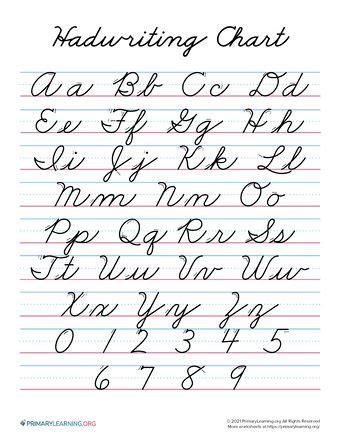 Hadwriting Chart
Aa Bb Cc Dd
Ee Ff Gg Hh
Ii Jj Kk Ll
Mm Nn Oo
Pp Qq Rr Ss
Tt Uu Vv Ww
Xx Yy Zz
0 1 2 3 4 5
6 7 8 9
PRIMARYLEARNING.ORG
© 2021 PrimaryLearning.org All Rights Reserved
More worksheets at https://primarylearning.org/